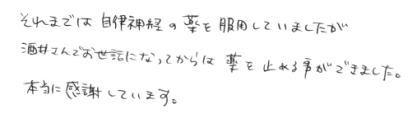 それまでは自律神経の薬を服用していましたが
酒井さんでお世話になってからは薬を止める事ができました。
本当に感謝しています。